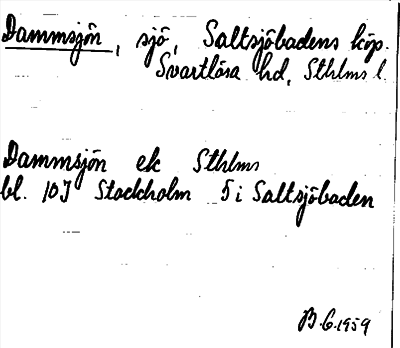 Dammsjön, sjö, Saltsjöbadens köp.
Svartlösa hd, Sthlms l.
Dammsjön ek Sthlms
bl. 10J Stockholm 5 i Saltsjöbaden
B.G. 1959